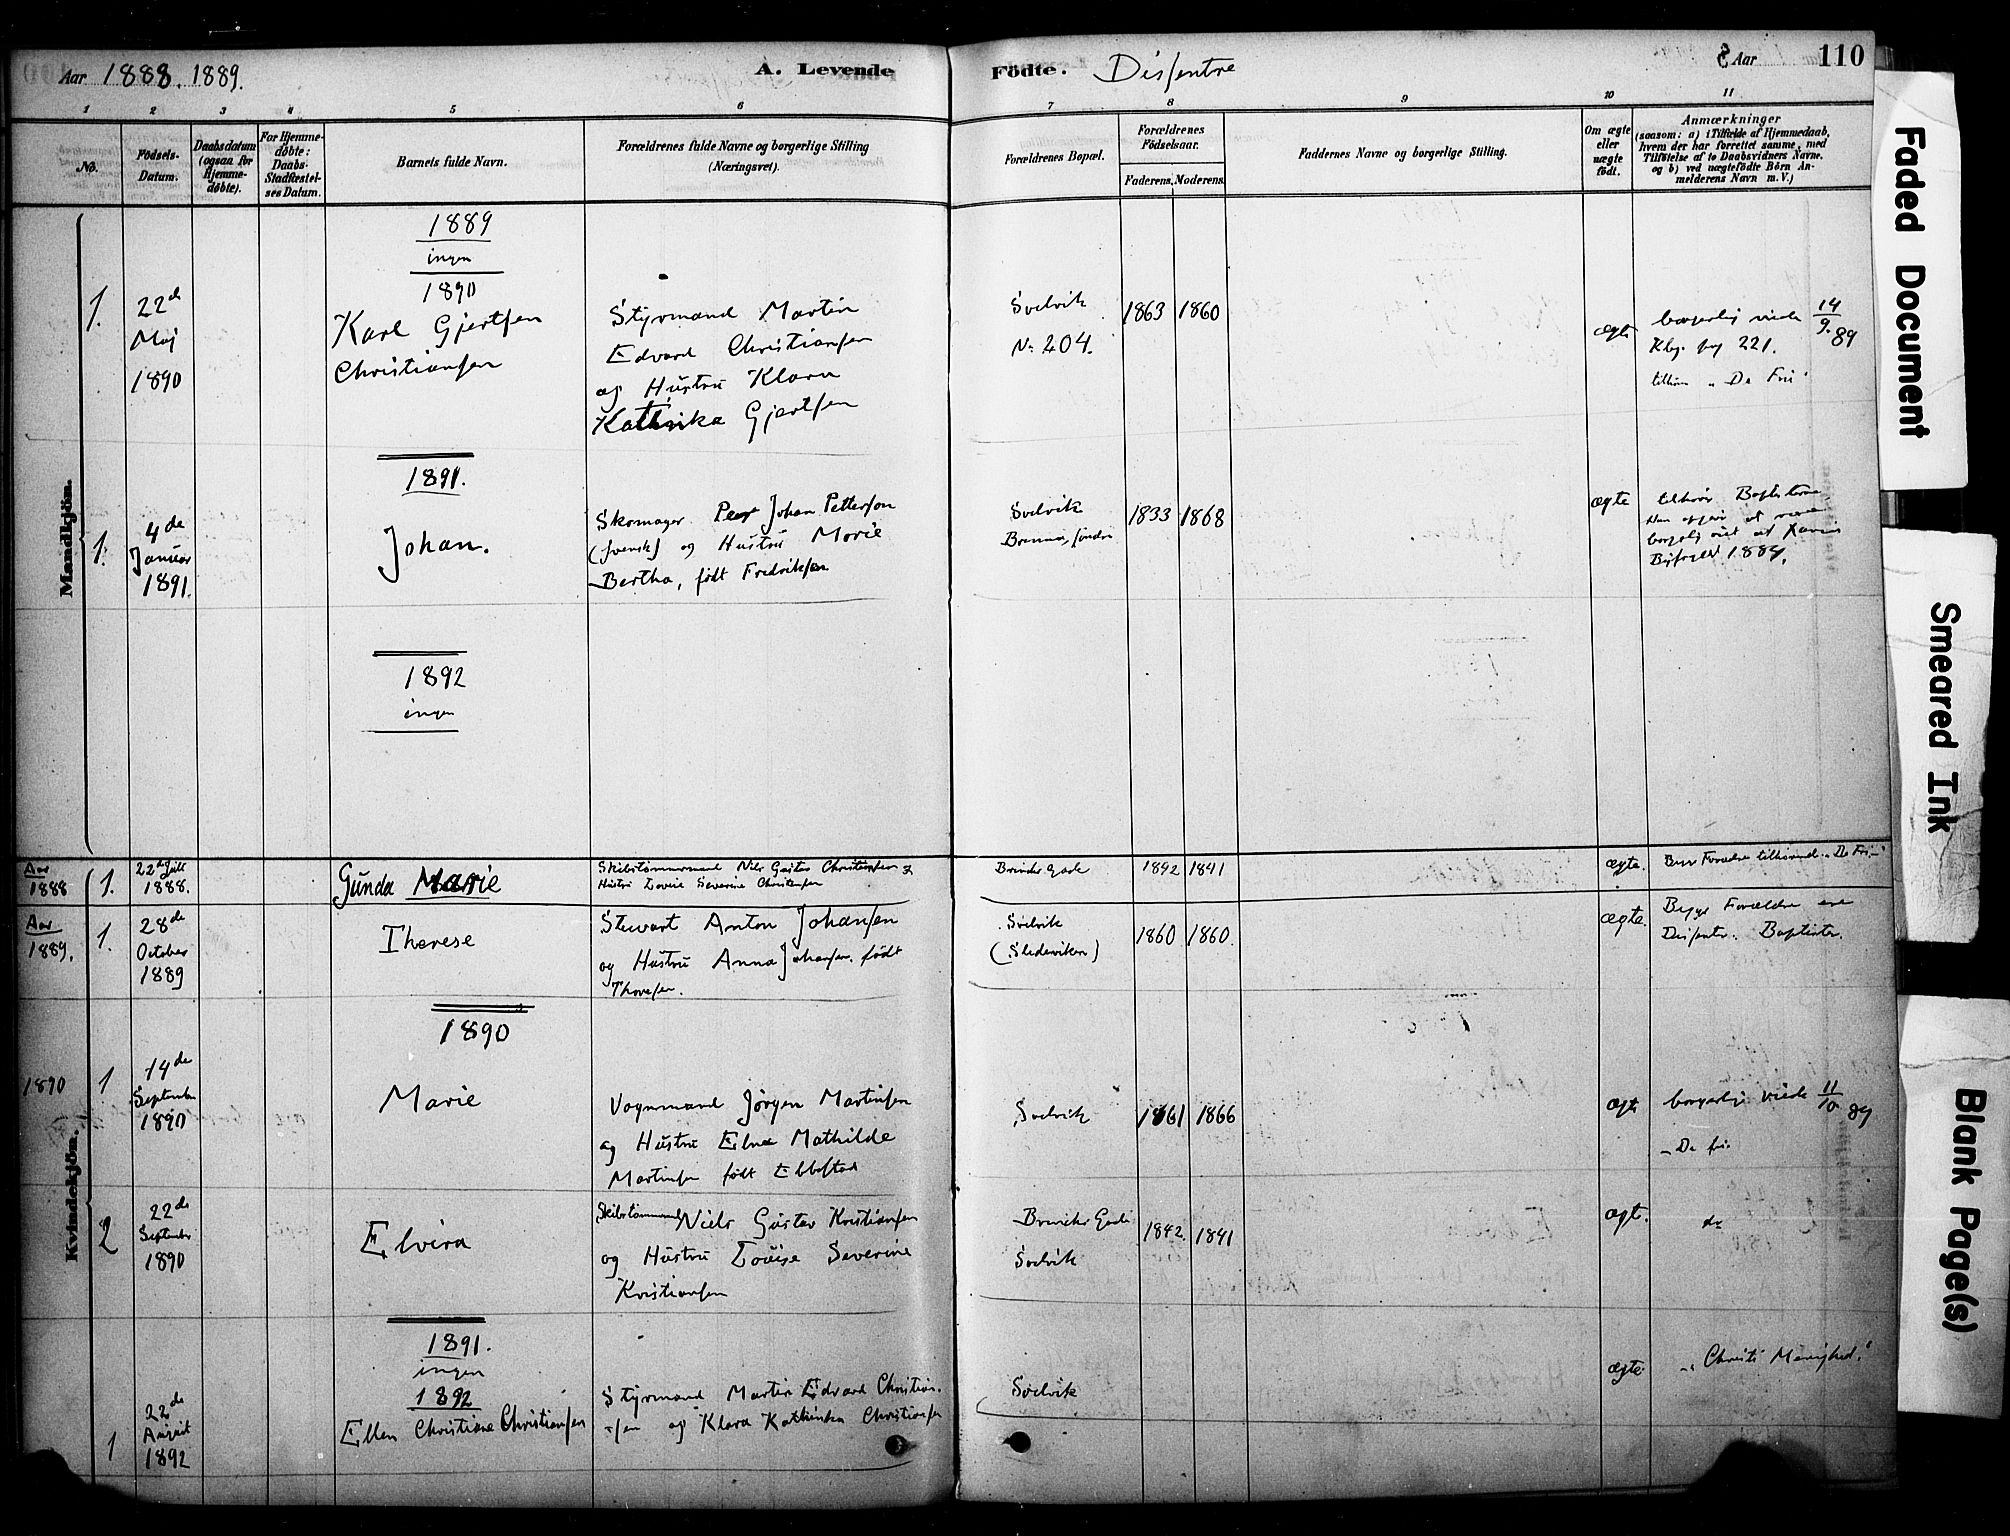 Aar 1888. 1889.
A. Levende Födte. Disfentre
Aar 110
1 2 3 4 5 6 7 8 9 10 11
No.
Födsels-Datum.
Daabsdatum (ogsaa for Hjemme-döbte).
For Hjemme-döbte: Daabs-Stadfæstel-ses Datum.
Barnets fulde Navn.
Forældrenes fulde Navne og borgerlige Stilling (Næringsvei).
Forældrenes Bopæl.
Forældrenes Födselsaar.
Faderens. Moderens.
Faddernes Navne og borgerlige Stilling.
Om ægte eller uægte födt.
Anmærkninger
(saasom: a) i Tilfælde af Hjemmedaab, hvem der har forrettet samme, med Tilföielse af to Daabsvidners Navne, og b) ved uægtefödte Börn An-melderens Navn m. V.)
Mandkjön.
1889
ingen
1890
1. 22de Maj 1890
Karl Gjertsen
Christiansen
Styrmand Martin
Edvard Christiansen
og Hustru Klara
Kathrika Gjertsen
Svelvik
No 204.
1863 1860
ægte
borgerlig viede 14/9 89
Kbg. pag 221.
"De Fri"
1891.
1. 4de Januar 1891.
Johan.
Skomager Peer Johan Petterson
(svensk) og Hustru Marie
Bertha, født Fredriksen
Svelvik
1833 1868
ægte
tilhører Baptisterne
1889.
1892
ingen
Aar 1888 1. 22de Juli 1888.
Gunda Marie
Skibstømmermand Nils Gustav Christiansen og
Hustru Lovise Severine Christensen
Brincks Gade
1892 1841
ægte.
"De Fri"
Aar 1889. 1. 28de October 1889
Therese
Stewart Anton Johansen
og Hustru Anna Johansen. født
Thoresen.
Svelvik
1860 1860.
ægte
Begge Forældre ere
Disfenter. Baptister.
1890
1890 1 14de September 1890
Marie
Vognmand Jørgen Martinsen
og Hustru Elna Mathilde
Martinsen født Ebbestad
Svelvik
1861 1866
ægte
borgerlige viede 11/10 89
- De fri
Kvindekjön.
2 22de September 1890
Elvira
Skibstømmermand Niels Gustav Kristiansen
og Hustru Louise Severine
Kristiansen
Brincks Gade
Svelvik
1842. 1841
ægt.
do
1891.
ingen
1892
1 22de August 1892
Ellen Christiane Christiansen
Styrmand Martin Edvard Christian-
-sen og Klara Kathinka Christiansen
Svelvik
ægte
"Christi Menighed."
Faded Document
Smeared Ink
Blank Page(s)